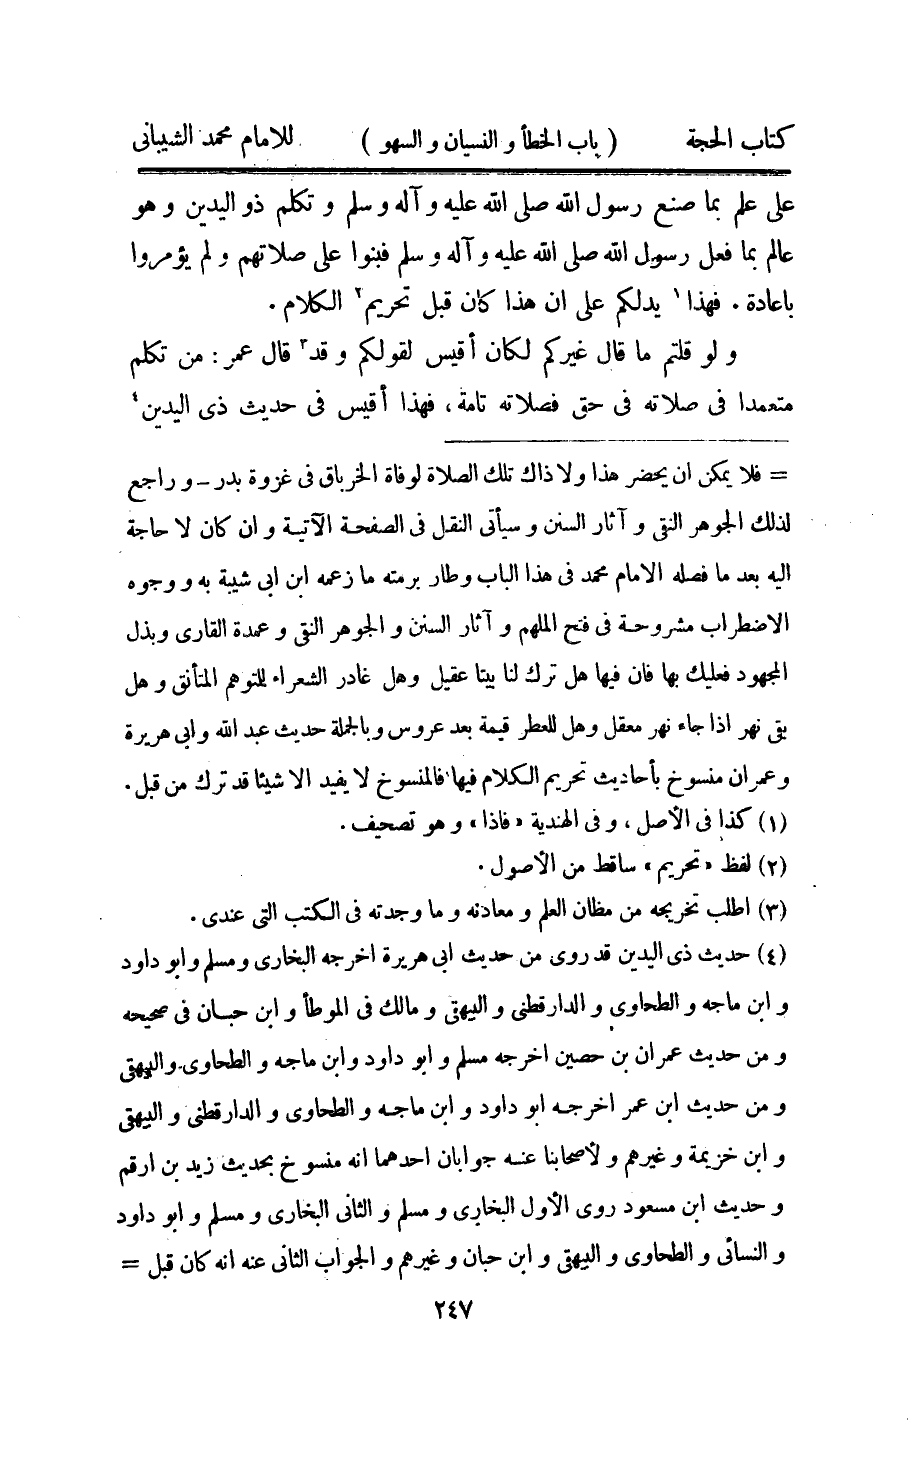 كتاب الحجة ( باب الخطأ و النسيان و السهو ) للامام محمد الشيبانى
على علم بما صنع رسول الله صلى الله عليه و آله و سلم و تكلم ذو اليدين و هو
عالم بما فعل رسول الله صلى الله عليه و آله و سلم فبنوا على صلاتهم و لم يؤمروا
باعادة . فهذا ١ يدلكم على ان هذا كان قبل تحريم ٢ الكلام .
و لو قلتم ما قال غيركم لكان أقيس لقولكم و قد ٣ قال عمر : من تكلم
متعمدا فى صلاته فى حق فصلاته تامة ، فهذا أقيس فى حديث ذى اليدين ٤
= فلا يمكن ان يحضر هذا ولا ذاك تلك الصلاة لوفاة الخرباق فى غزوة بدر ــ و راجع
لذلك الجوهر النقى و آثار السنن و سيأتى النقل فى الصفحة الآتية و ان كان لا حاجة
اليه بعد ما فصله الامام محمد فى هذا الباب وطار برمته ما زعمه ابن ابى شيبة به و وجوه
الاضطراب مشروحة فى فتح الملهم و آثار السنن و الجوهر النقى و عمدة القارى وبذل
المجهود فعليك بها فان فيها هل ترك لنا بيتا عقيل وهل غادر الشعراء للتوهم المتأنق و هل
بقى نهر اذا جاء نهر معقل وهل للعطر قيمة بعد عروس وبالجملة حديث عبد الله وابى هريرة
وعمران منسوخ بأحاديث تحريم الكلام فيها فالمنسوخ لا يفيد الا شيئا قد ترك من قبل .
(١) كذا فى الأصل ، و فى الهندية « فاذا » و هو تصحيف .
(٢) لفظ « تحريم » ساقط من الأصول .
(٣) اطلب تخريجه من مظان العلم و معادنه و ما وجدته فى الكتب التى عندى .
(٤) حديث ذى اليدين قد روى من حديث ابى هريرة اخرجه البخارى و مسلم و ابو داود
و ابن ماجه و الطحاوى و الدارقطنى و البيهقى و مالك فى الموطأ و ابن حبان فى صحيحه
و من حديث عمران بن حصين اخرجه مسلم و ابو داود وابن ماجه و الطحاوى و البيهقى
و من حديث ابن عمر اخرجه ابو داود و ابن ماجه و الطحاوى و الدارقطنى و البيهقى
و ابن خزيمة و غيرهم و لأصحابنا عنه جوابان احدهما انه منسوخ بحديث زيد بن ارقم
و حديث ابن مسعود روى الأول البخارى و مسلم و الثانى البخارى و مسلم و ابو داود
و النسائى و الطحاوى و البيهقى و ابن حبان و غيرهم و الجواب الثانى عنه انه كان قبل =
٢٤٧